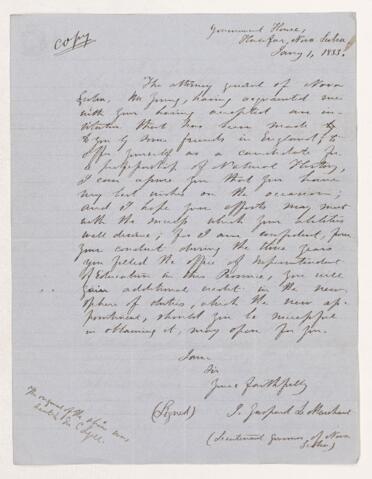 Copy
Government House,
Halifax, Nova Scotia
Jany 1, 1853.
The attorney general of Nova
Scotia, Mr Young, having acquainted me
with your having accepted an in-
vitation that has been made to
you by some friends in England, to
offer yourself as a candidate for
a professorship of Natural History,
I can assure you that you have
my best wishes on the occasion;
and I hope your efforts may meet
with the success which your abilities
well deserve; for I am confident, from
your conduct during the three years
you filled the office of Superintendent
of Education in this Province, you will
gain additional credit in the new
sphere of duties, which the new ap-
pointment, should you be successful
in obtaining it, may open for you.
I am
Sir
Yours faithfully
(Signed) J. Gaspard Le Marchant
(Lieutenant Governor of Nova
Scotia)
The original of the above was
sent to Sir C Lyell.